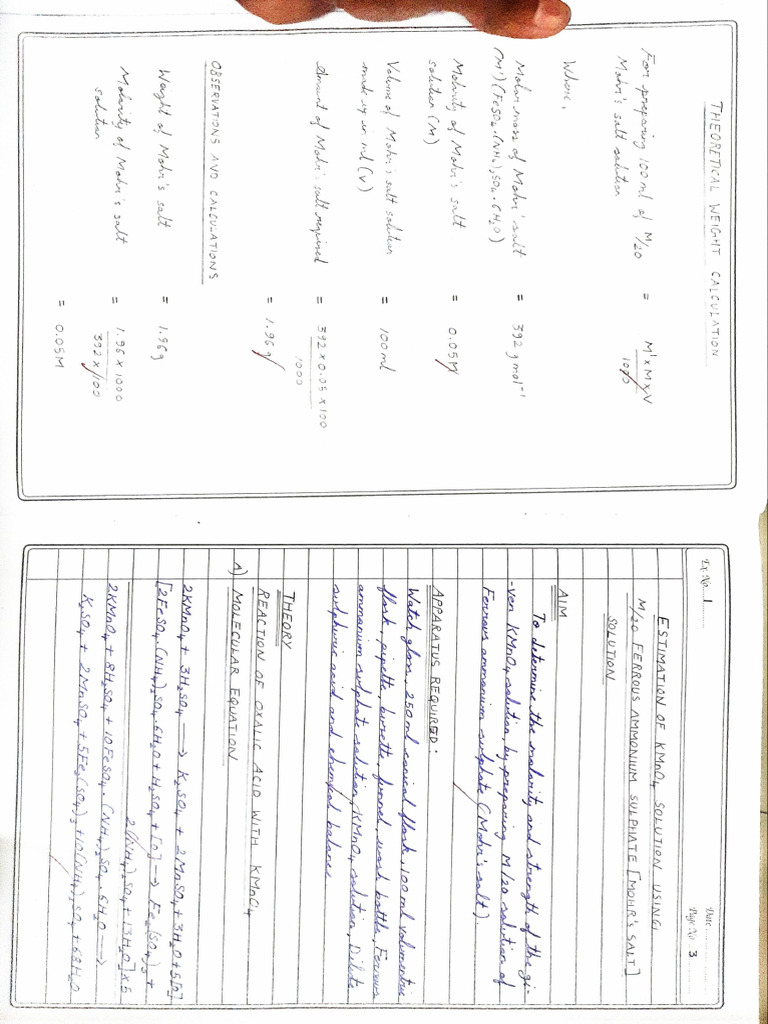 THEORETICAL WEIGHT CALCULATION
For preparing 100ml of M/20 = M'xMxV
Mohr's salt solution 1000
Where,
Molar mass of Mohr's salt = 392 g mol⁻¹
(M') (FeSO₄.(NH₄)₂SO₄.6H₂O)
Molarity of Mohr's salt = 0.05M
solution (M)
Volume of Mohr's salt solution = 100ml
made up in ml (V)
Amount of Mohr's salt required = 392 x 0.05 x 100
1000
= 1.96g
OBSERVATIONS AND CALCULATIONS
Weight of Mohr's salt = 1.96g
Molarity of Mohr's salt = 1.96 x 1000
solution 392 x 100
= 0.05M
Ex. No. 1 Date
Page No. 3
ESTIMATION OF KMnO₄ SOLUTION USING
M/20 FERROUS AMMONIUM SULPHATE [MOHR'S SALT]
SOLUTION
AIM
To determine the molarity and strength of the gi-
-ven KMnO₄ solution, by preparing M/20 solution of
Ferrous ammonium sulphate (Mohr's salt).
APPARATUS REQUIRED:
Watch glass, 250ml conical flask, 100ml volumetric
flask, pipette, burette, funnel, wash bottle, Ferrous
ammonium sulphate solution, KMnO₄ solution, Dilute
sulphuric acid and chemical balance
THEORY
REACTION OF OXALIC ACID WITH KMnO₄
A) MOLECULAR EQUATION
2KMnO₄ + 3H₂SO₄ → K₂SO₄ + 2MnSO₄ + 3H₂O + 5[O]
[2FeSO₄.(NH₄)₂SO₄.6H₂O + H₂SO₄ + [O] → Fe₂(SO₄)₃ +
2(NH₄)₂SO₄ + 13H₂O] x 5
2KMnO₄ + 8H₂SO₄ + 10FeSO₄.(NH₄)₂SO₄.6H₂O →
K₂SO₄ + 2MnSO₄ + 5Fe₂(SO₄)₃ + 10(NH₄)₂SO₄ + 68H₂O